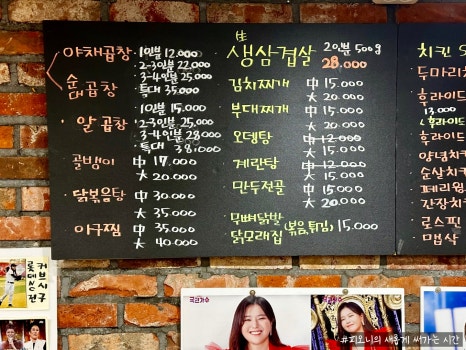 야채곱창 ・1인분 12.000
・2-3인분 22.000
순대곱창 ・3-4인분 25.000
・특대 35.000
・알곱창 ・1인분 15.000
・2-3인분 25.000
・3-4인분 28.000
・특대 38.000
골뱅이 中 17.000
大 20.000
・닭볶음탕 中 30.000
大 35.000
・아구찜 中 35.000
大 40.000
生
생삼겹살 2인분 500g
28.000
김치찌개 中 15.000
大 20.000
부대찌개 中 15.000
大 20.000
오뎅탕 中 12.000
大 15.000
계란탕 中 12.000
大 15.000
만두전골 中 15.000
大 20.000
무뼈닭발
닭모래집 (볶음, 튀김) 15.000
치킨
두마리치
후라이드
13.000
후라이드
양념치킨
순살치킨
페리윙
간장치킨
로스핏
마볍사
국민가수
국민가수
#피오니의 새롭게 써가는 시간